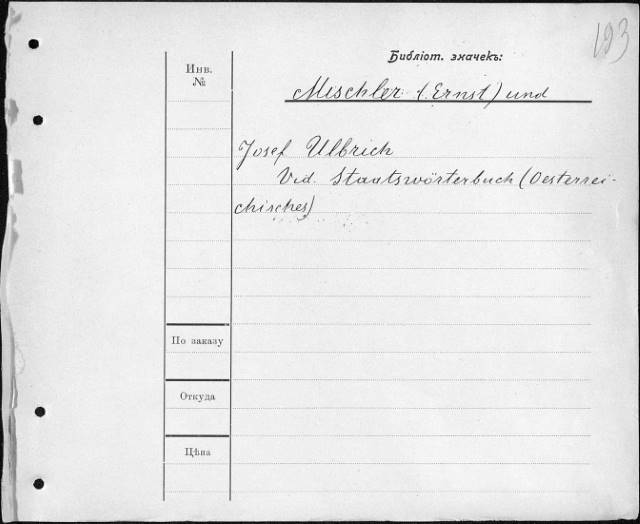 193
Библіот. значекъ:
Инв.
№
Mischler (Ernst) und
Josef Ulbrich
Vid. Staatswörterbuch (Oesterrei-
chisches)
По заказу
Откуда
Цѣна